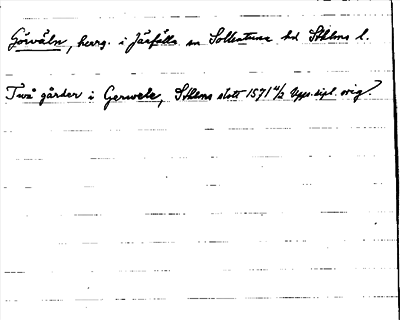 Görväln, herrg. i Järfälla sn Sollentuna hd Sthlms l.
Två gårder i Gerwele, Sthlms slott 1571 4/2 Upps. dipl. orig.